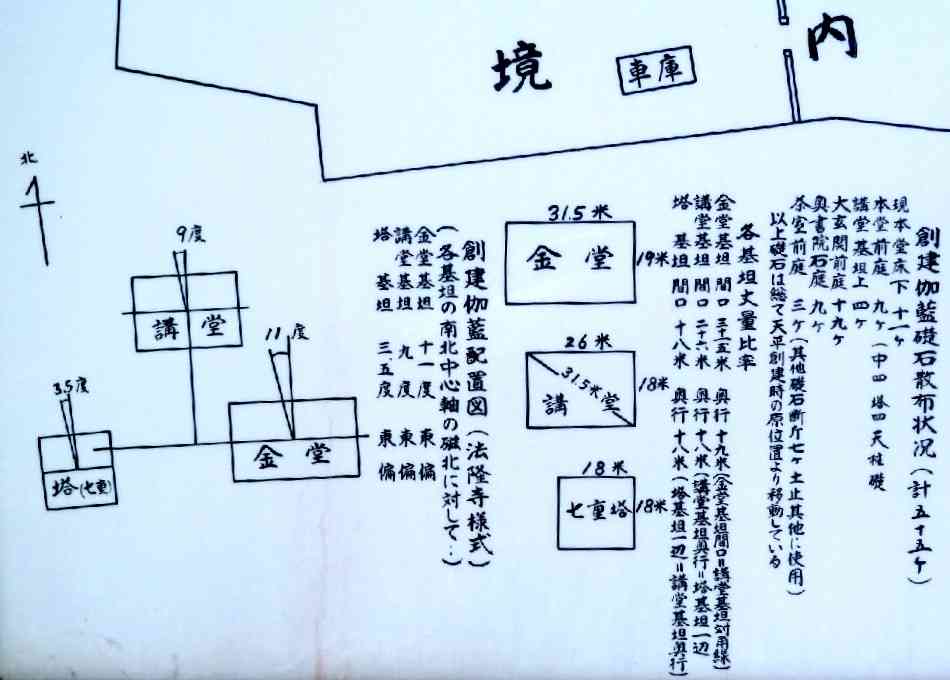 境内
車庫
北
創建伽藍礎石散布状况(計五十五ケ)
現本堂床下 十一ケ
本堂前庭 九ケ(中四 塔四 天柱礎
講堂基垣上 四ケ
大玄関前庭 十九ケ
奥書院石庭 九ケ
茶室前庭 三ケ(其他礎石断片七ケ土止其他に使用)
以上礎石は総て天平創建時の原位置より移動している
各基垣丈量比率
金堂基垣 間口 三十一・五米 奥行 十九米(金堂基垣間口=講堂基垣対角線)
講堂基垣 間口 二十六米 奥行 十八米(講堂基垣奥行=塔基垣一辺
塔 基垣 間口 十八米 奥行 十八米(塔基垣一辺=講堂基垣奥行)
31.5米
金堂
19米
26米
31.5米
講堂
18米
18米
七重塔
18米
創建伽藍配置図(法隆寺様式)
(各基垣の南北中心軸の磁北に対して‥)
金堂基垣 十一度 東偏
講堂基垣 九度 東偏
塔 基垣 三.五度 東偏
9度
講堂
11度
金堂
3.5度
塔(七重)